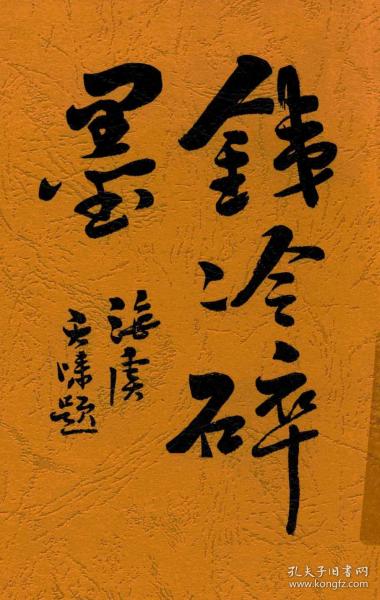 銕冷碎
墨
海虞
天嘯題
孔夫子旧书网
www.kongfz.com